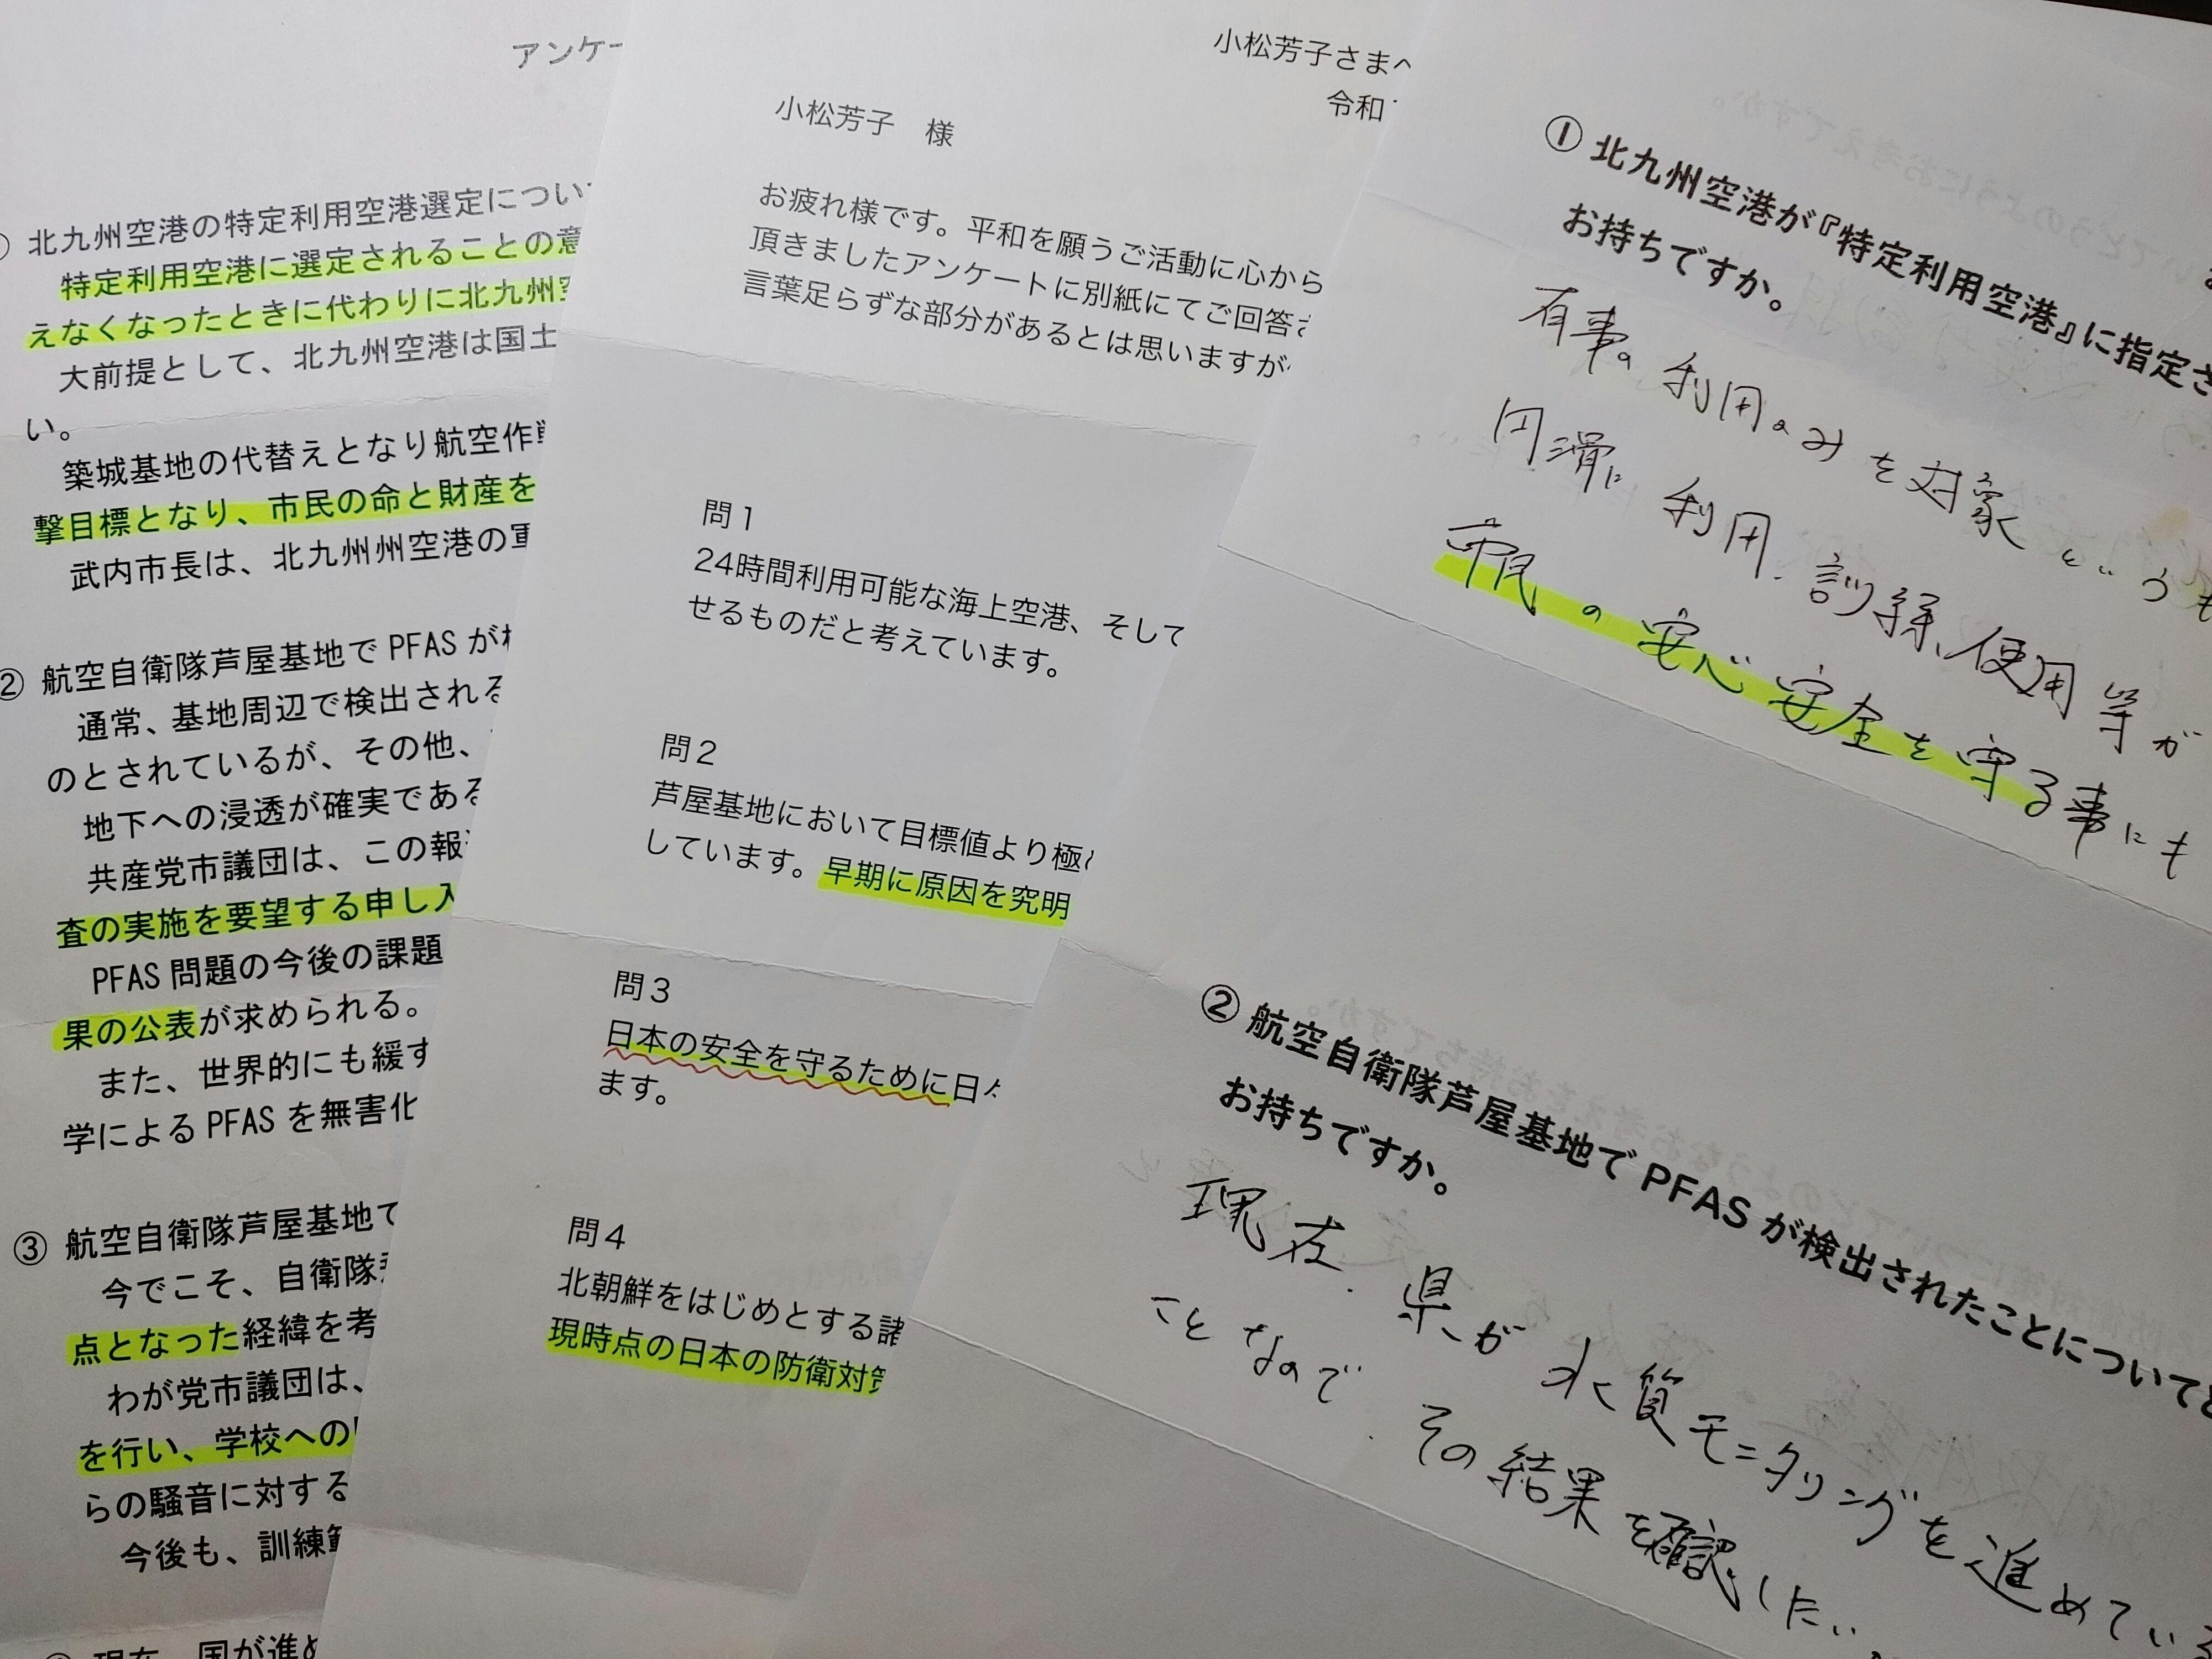 アンケー
北九州空港の特定利用空港選定につい
特定利用空港に選定されることの意
えなくなったときに代わりに北九州空
大前提として、北九州空港は国土
い。
築城基地の代替えとなり航空作戦
撃目標となり、市民の命と財産を
武内市長は、北九州州空港の軍
② 航空自衛隊芦屋基地で PFAS が検
通常、基地周辺で検出される
のとされているが、その他、
地下への浸透が確実である
共産党市議団は、この報
査の実施を要望する申し入
PFAS 問題の今後の課題
果の公表が求められる。
また、世界的にも緩す
学による PFAS を無害化
③ 航空自衛隊芦屋基地で
今でこそ、自衛隊
点となった経緯を考
わが党市議団は、
を行い、学校への
らの騒音に対する
今後も、訓練
現在、国が進め
小松芳子さまへ
令和
小松芳子 様
お疲れ様です。平和を願うご活動に心から
頂きましたアンケートに別紙にてご回答さ
言葉足らずな部分があるとは思いますが
問１
24時間利用可能な海上空港、そして
せるものだと考えています。
問２
芦屋基地において目標値より極
しています。早期に原因を究明
問３
日本の安全を守るために日々
ます。
問４
北朝鮮をはじめとする諸
現時点の日本の防衛対策
① 北九州空港が『特定利用空港』に指定さ
お持ちですか。
有事の利用のみを対象というも
円滑に利用、訓練、使用等が
市民の安心安全を守る事にも
② 航空自衛隊芦屋基地で PFAS が検出されたことについてど
お持ちですか。
現在、県が水質モニタリングを進めている
ことなので、その結果を確認したい